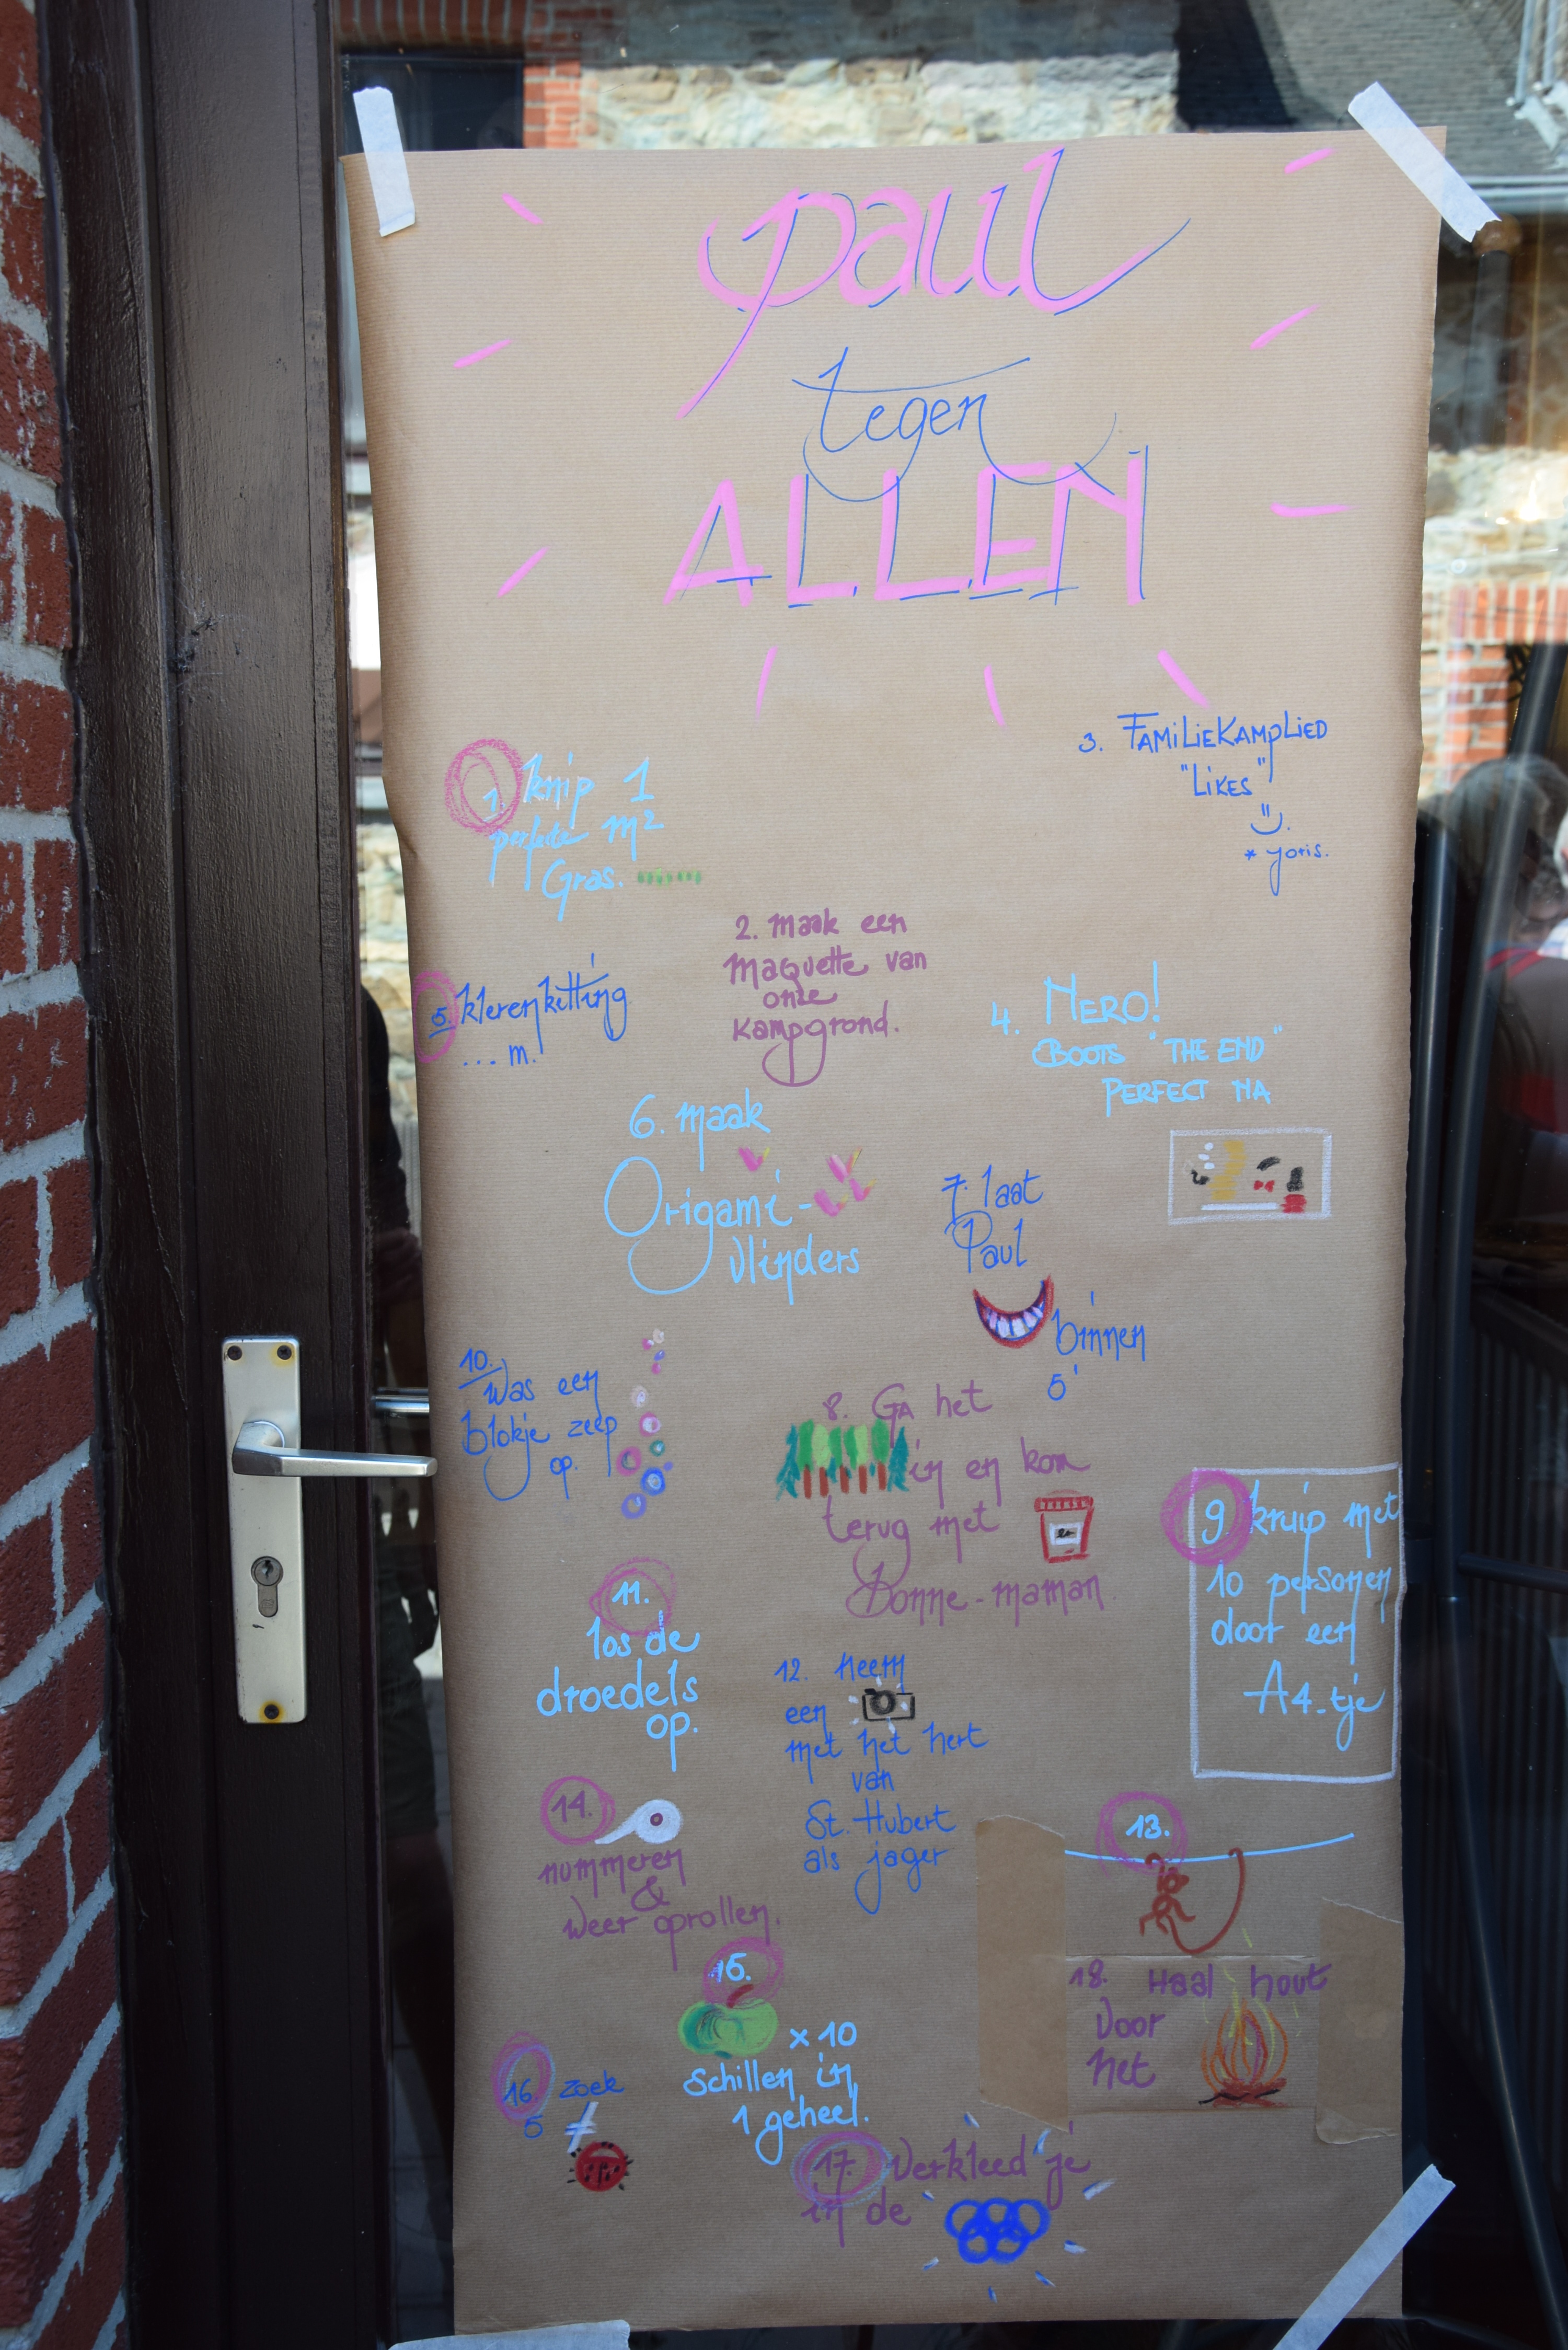 paul
tegen
ALLEN
1. knip 1
perfecte m²
Gras.
3. FAMiLiEKAMpLiED
"LiKES"
* joris.
2. maak een
maquette van
onze
kampgrond.
5. klerenketting
... m.
4. NERO!
BOOTS "THE END"
PERFECT NA
6. maak
Origami-
vlinders
7. laat
Paul
binnen
5'
10.
was een
blokje zeep
op.
8. GA het
in en kom
terug met
bonne-maman
9 kruip met
10 personen
door een
A4-tje
11.
los de
droedels
op.
12. Neem
een
met het hert
van
St. Hubert
als jager
14.
nummeren
&
weer oprollen.
13.
18. Haal hout
voor
het
15.
x 10
schillen in
1 geheel.
16. zoek
5 ≠
17. Verkleed je
in de